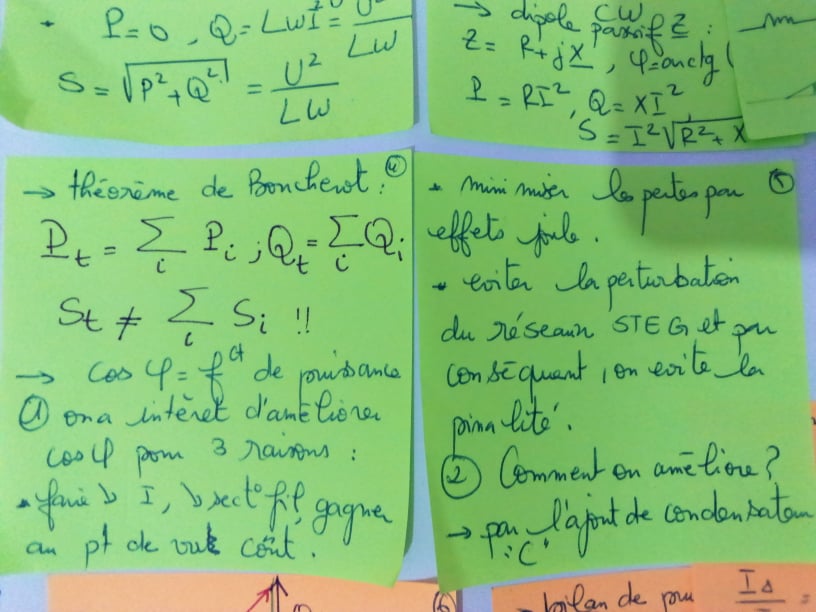 • P = 0 , Q = LωI² = U²/Lω
S = √(P² + Q²) = U²/Lω
→ dipole passif Z :
Z = R + jX , φ = arctg (
P = RI² , Q = XI²
S = I²√(R² + X
→ théorème de Boncherot : ④
P_t = Σ_i P_i ; Q_t = Σ_i Q_i
S_t ≠ Σ_i S_i !!
→ cos φ = f^ct de puissance
① on a intèret d'améliorer
cos φ pour 3 raisons :
• faire ↘ I, ↘ sect° fil, gagner
au pt de vue coût.
• minimiser les pertes par ⑤
effets joule.
• eviter la perturbation
du réseaux STEG et par
conséquant , on evite la
pinalité.
② Comment on améliore ?
→ par l'ajout de condensateur
"C"
• bilan de pui
I_Δ =